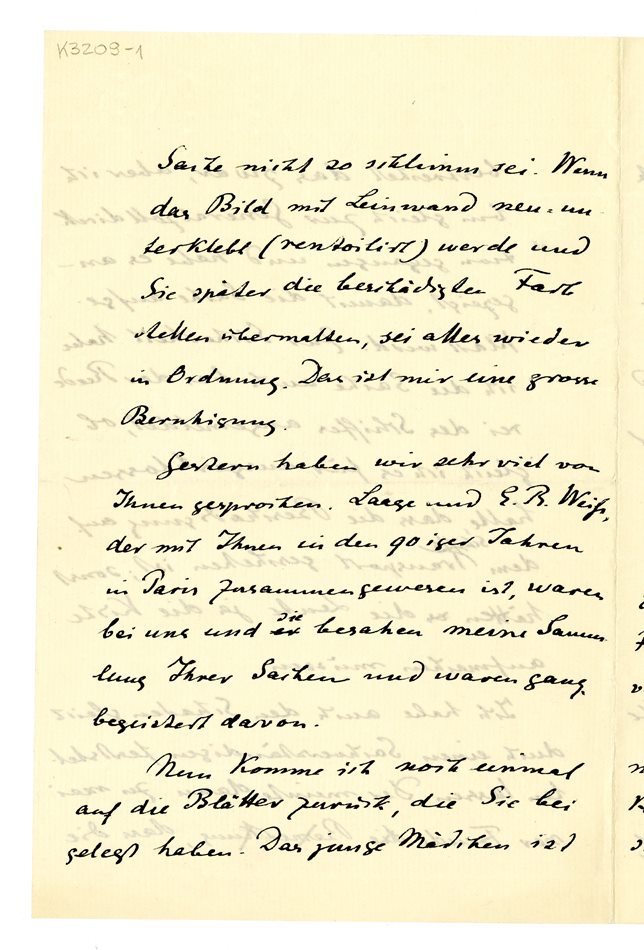 K3209-1
Sache nicht so schlimm sei. Wenn
das Bild mit Leinwand neu-un
terklebt (rentoilirt) werde und
Sie später die beschädigten Farb
stellen übermalten, sei alles wieder
in Ordnung. Das ist mir eine grosse
Beruhigung.
Gestern haben wir sehr viel von
Ihnen gesprochen. Laage und E. R. Weiß,
der mit Ihnen in den 90iger Jahren
in Paris zusammengewesen ist, waren
bei uns und sie besahen meine Samm
lung Ihrer Sachen und waren ganz
begeistert davon.
Nun komme ich noch einmal
auf die Blätter zurück, die Sie bei
gelegt haben. Das junge Mädchen ist